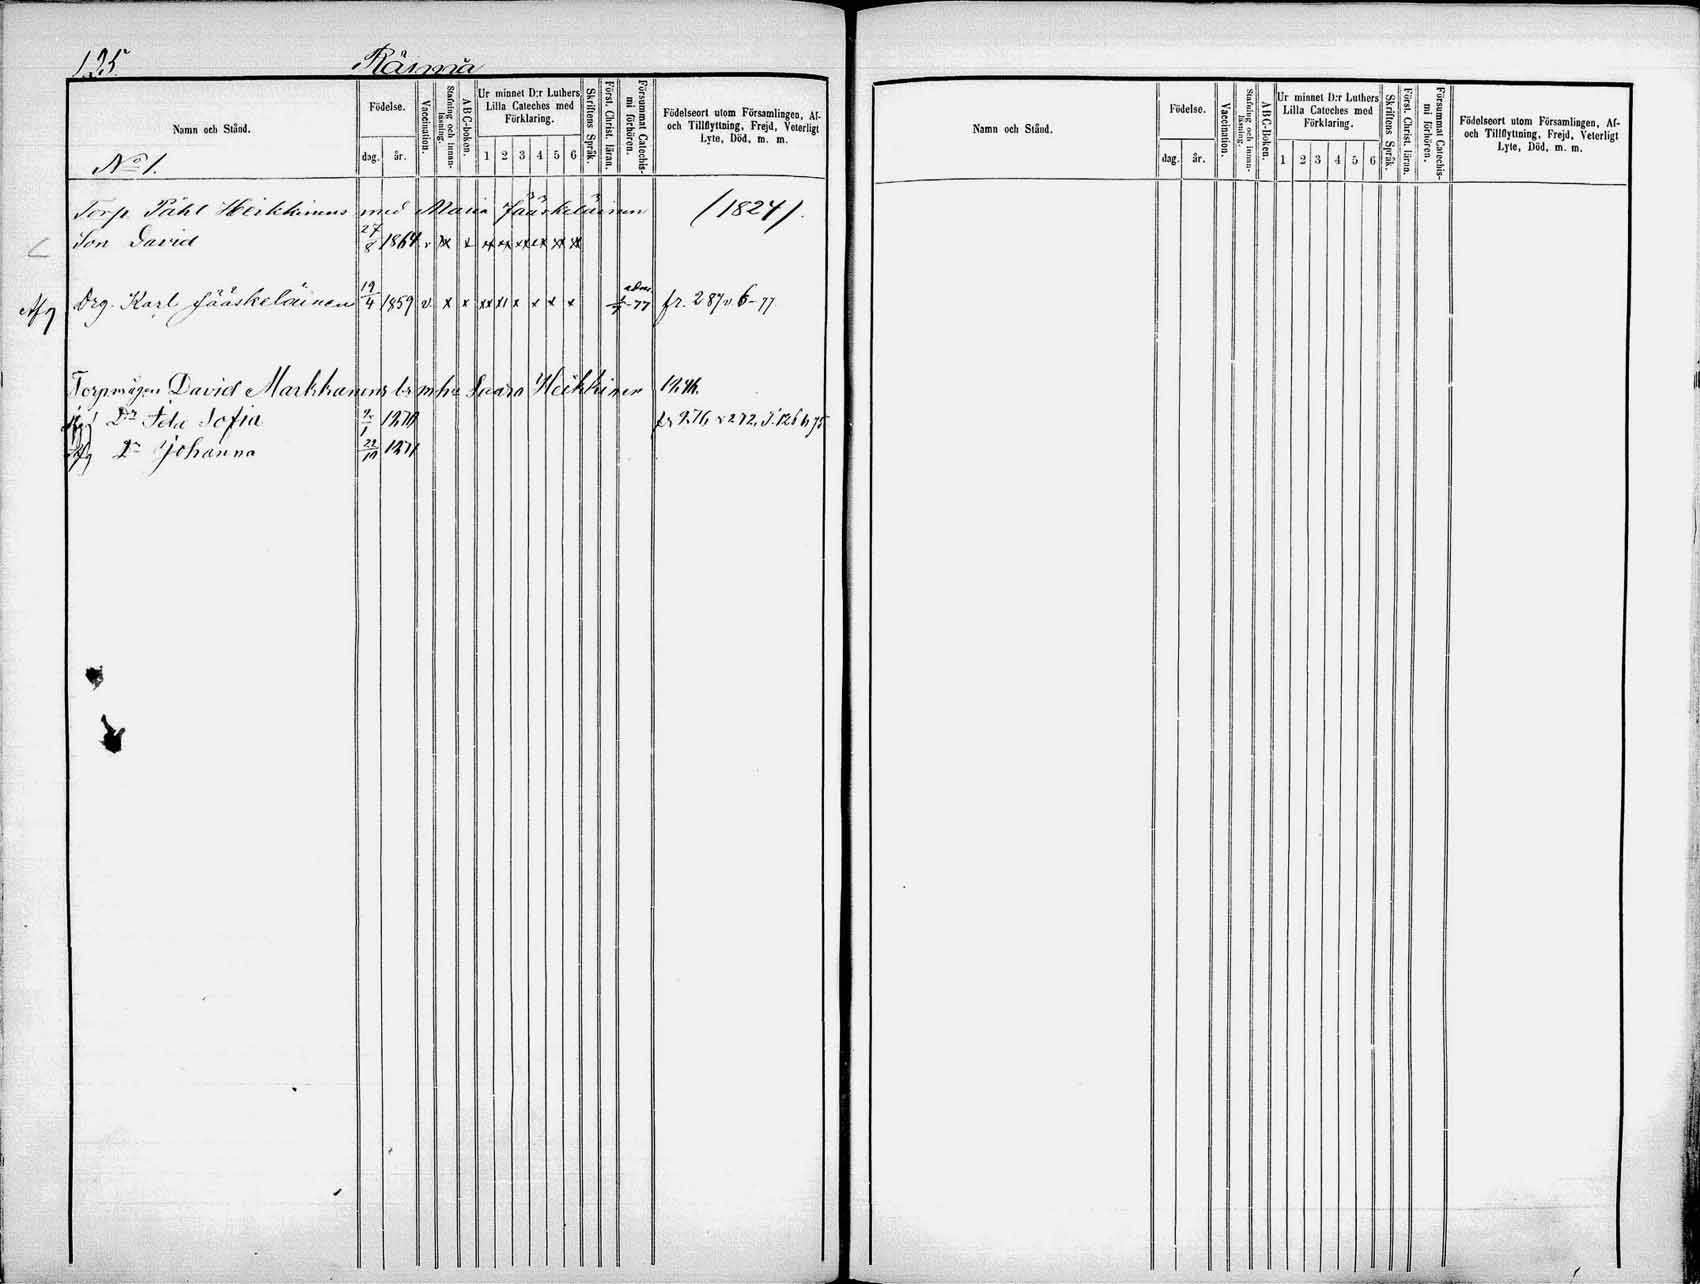 125. Räimä
Namn och Stånd.
Födelse.
dag. år.
Vaccination.
Stafning och innan-läsning.
ABC-boken.
Ur minnet D:r Luthers Lilla Cateches med Förklaring.
1 2 3 4 5 6
Skriftens Språk.
Först. Christ. läran.
Försummat Catechis-mi förhören.
Födelseort utom Församlingen, Af-
och Tillflyttning, Frejd, Veterligt
Lyte, Död, m. m.
No 1.
Torp. Påhl Heikkinens med Maria Jääskeläinen (1824).
Son David 27/8 1864 v x x xx xx xx xx xx xx
Afg Drg. Karl Jääskeläinen 19/4 1859 v x x xx x x x x x adm. 77 fr. 287 v 6-77
Torpmågen David Markkanens m h Saara Heikkinen
Dr Ida Sofia
Afg Dr Johanna 22/10 1871
Namn och Stånd.
Födelse.
dag. år.
Vaccination.
Stafning och innan-läsning.
ABC-Boken.
Ur minnet D:r Luthers Lilla Cateches med Förklaring.
1 2 3 4 5 6
Skriftens Språk.
Först. Christ. läran.
Försummat Catechis-mi förhören.
Födelseort utom Församlingen, Af-
och Tillflyttning, Frejd, Veterligt
Lyte, Död, m. m.